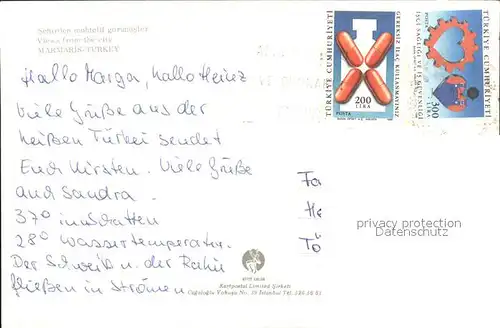 Şehirden muhtelif görünüşler
Views from the city
MARMARİS-TURKEY
Hallo Marga, hallo Heinz
Viele Grüße aus der
heißen Türkei sendet
Euch Kirsten. Viele Grüße
auch Sandra.
37° im Schatten
28° Wassertemperatur.
Der Schweiß u. der Rahm
fließen in Strömen
TÜRKİYE CUMHURİYETİ
GEREKSİZ İLAÇ KULLANMAYINIZ
200
LİRA
POSTA
TÜRKİYE CUMHURİYETİ
İŞÇİ SAĞLIĞI VE İŞ GÜVENLİĞİ
POSTA
300
LİRA
Fa
He
Tü
privacy protection
Kartpostal Limited Şirketi
Cağaloğlu Yokuşu No. 19 İstanbul Tel.